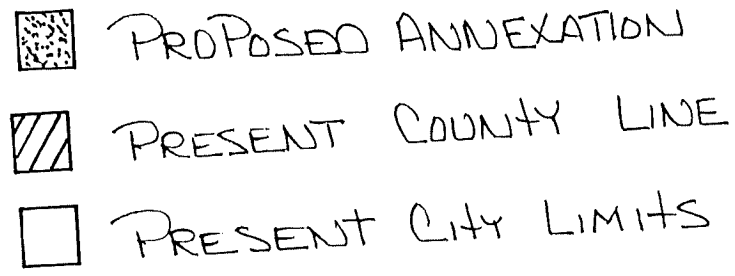 PROPOSED ANNEXATION
PRESENT COUNTY LINE
PRESENT CITY LIMITS